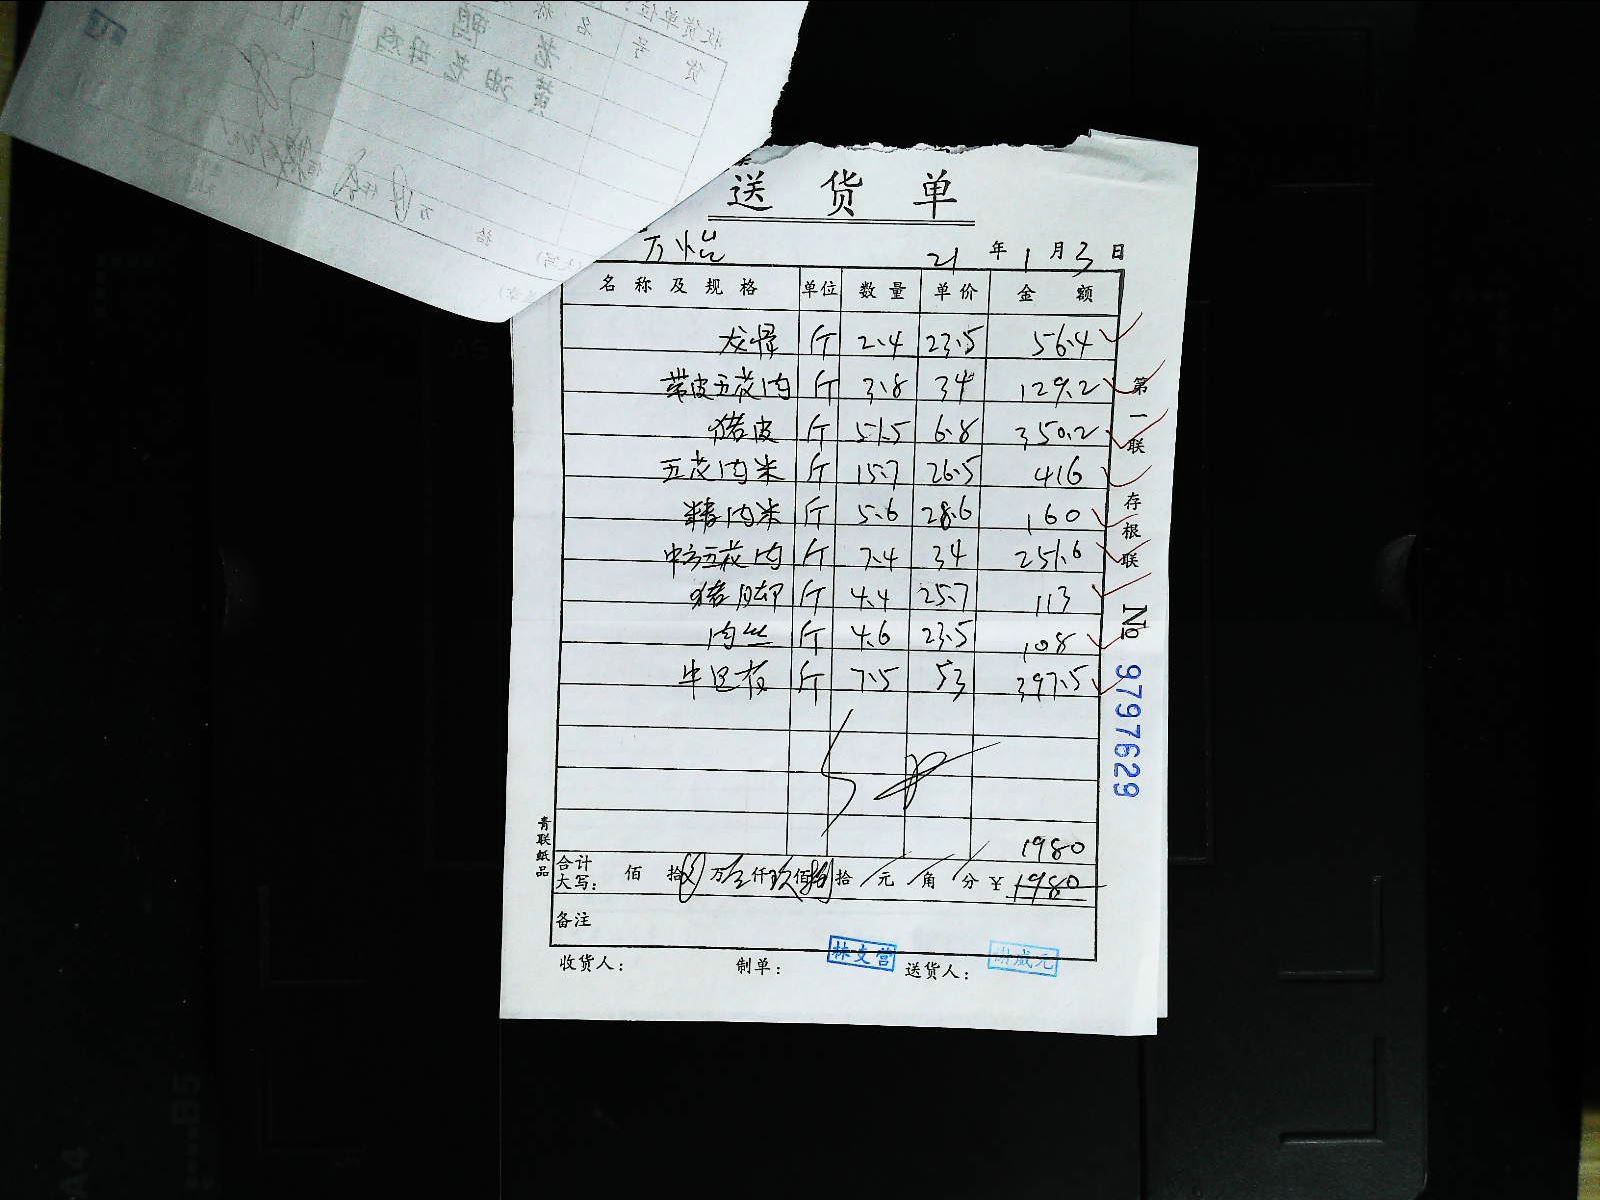 送 货 单
万怡 21 年 1 月 3 日
名 称 及 规 格 单位 数 量 单 价 金 额
龙骨 斤 2.4 23.5 56.4
带皮五花肉 斤 3.8 34 129.2
猪皮 斤 51.5 6.8 350.2
五花肉米 斤 15.7 26.5 416
精肉米 斤 5.6 28.6 160
中方五花肉 斤 7.4 34 251.6
猪脚 斤 4.4 25.7 113
肉丝 斤 4.6 23.5 108
牛 斤 7.5 53 397.5
1980
合计
大写: 佰 拾 万 仟玖佰捌拾 元 角 分 ¥ 1980
备注
收货人: 制单: 林支营 送货人:
第一联 存根联
№ 9797629
青联纸品
收货单位
货 号 名 称
老 鸭
黄 油 老 母 鸡